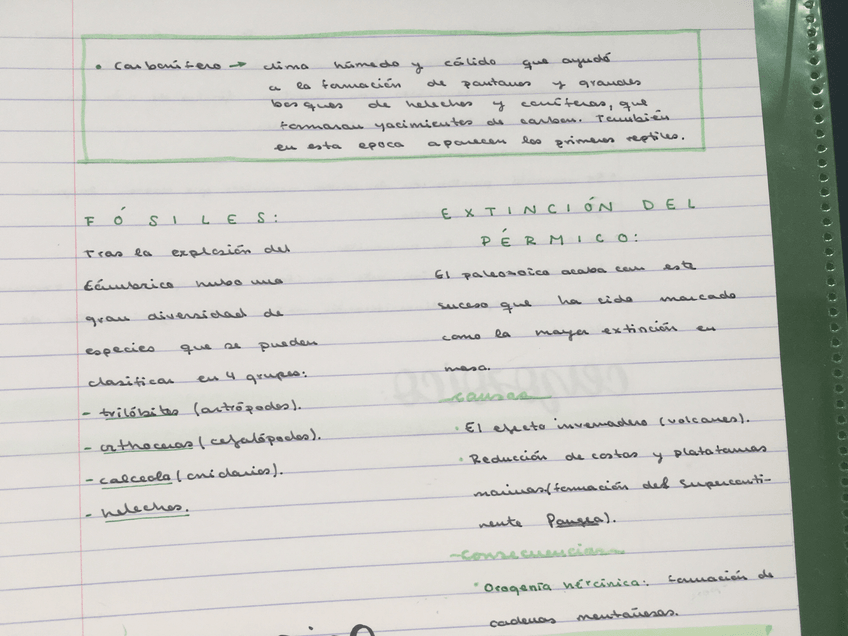 • Carbonífero → clima húmedo y cálido que ayudó
a la formación de pantanos y grandes
bosques de helechos y coníferas, que
formaran yacimientos de carbon. También
en esta epoca aparecen los primeros reptiles.
FÓSILES:
Tras la explosión del
Cámbrico hubo una
gran diversidad de
especies que se pueden
clasificar en 4 grupos:
- trilóbites (artrópodos).
- orthoceras (cefalópodos).
- calceola (cnidarios).
- helechos.
EXTINCIÓN DEL
PÉRMICO:
El paleozoico acaba con este
suceso que ha sido marcado
como la mayor extinción en
masa.
-causas
• El efecto invernadero (volcanes).
• Reducción de costas y plataformas
marinas (formación del superconti-
nente Pangea).
-consecuencias
• Orogenia hercínica: formación de
cadenas montañosas.